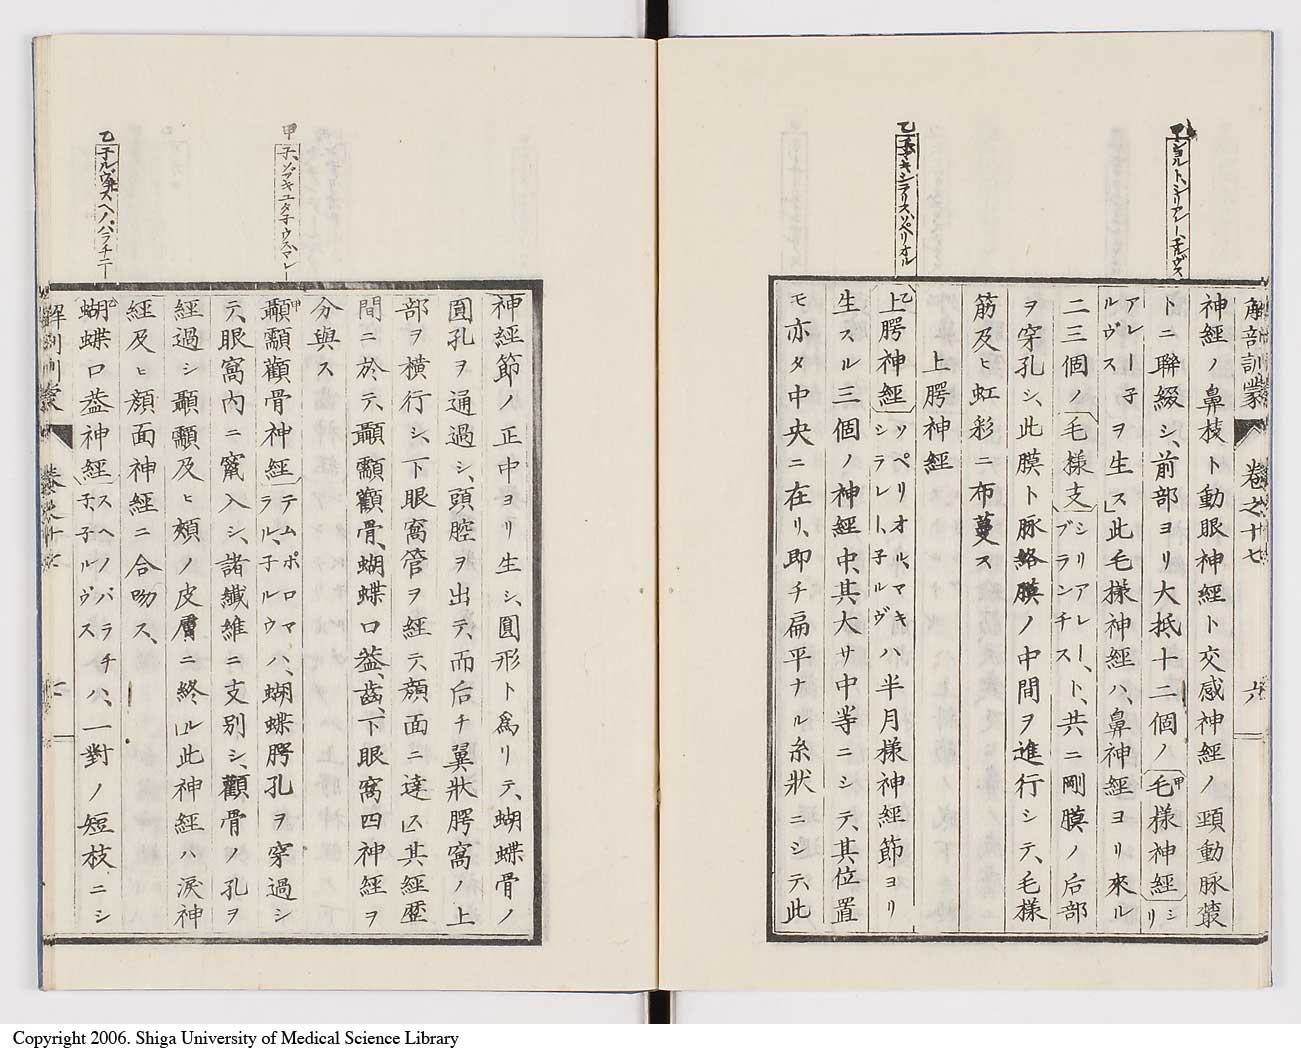 解剖訓蒙 卷之十七 六
甲ショルト、シリアレー子ルヴス
乙子、マキシラリス、ソペリオル
神經ノ鼻枝ト動眼神經ト交感神經ノ頸動脉叢
トニ聯綴シ、前部ヨリ大抵十二個ノ毛樣神經シリ
アレー子ルヴスヲ生ス此毛樣神經ハ、鼻神經ヨリ來ル
二三個ノ毛樣支シリアレー、ブランチス、ト、共ニ剛膜ノ后部
ヲ穿孔シ、此膜ト脉絡膜ノ中間ヲ進行シテ、毛樣
筋及ヒ虹彩ニ布蔓ス
上腭神經
上腭神經ソッペリオル、マキシラレト、子ルヴハ半月樣神經節ヨリ
生スル三個ノ神經中、其大サ中等ニシテ、其位置
モ亦タ中央ニ在リ、即チ扁平ナル糸狀ニシテ、此
甲
乙子ルヴス、スヘノ、パラチニー
神經節ノ正中ヨリ生シ、圓形ト爲リテ、蝴蝶骨ノ
圓孔ヲ通過シ、頭腔ヲ出テ、而后チ翼狀腭窩ノ上
部ヲ橫行シ、下眼窩管ヲ經テ、顏面ニ達ス其經歷
間ニ於テ、顳顬顴骨、蝴蝶口葢、齒、下眼窩四神經ヲ
分與ス
顳顬顴骨神經テムポロマラル、子ルウハ、蝴蝶腭孔ヲ穿過シ
テ、眼窩內ニ竄入シ、諸纖維ニ支別シ、顴骨ノ孔ヲ
經過シ顳顬及ヒ頰ノ皮膚ニ終ル此神經ハ淚神
經及ヒ顏面神經ニ合吻ス、
蝴蝶口葢神經スヘノパラチ子、子ルヴスハ、一對ノ短枝ニシ
解剖訓蒙 卷之十七 七
Copyright 2006. Shiga University of Medical Science Library